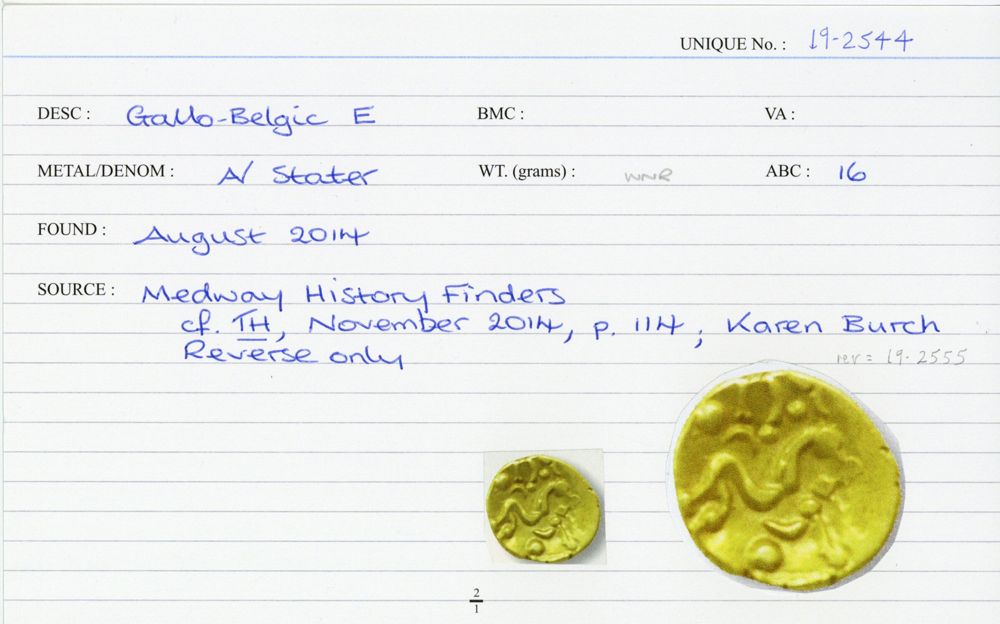 UNIQUE No. : 19-2544
DESC : Gallo-Belgic E BMC : VA :
METAL/DENOM : A/ Stater WT. (grams) : WNR ABC : 16
FOUND : August 2014
SOURCE : Medway History Finders
cf. TH, November 2014, p. 114 ; Karen Burch
Reverse only rev = 19-2555
2
1